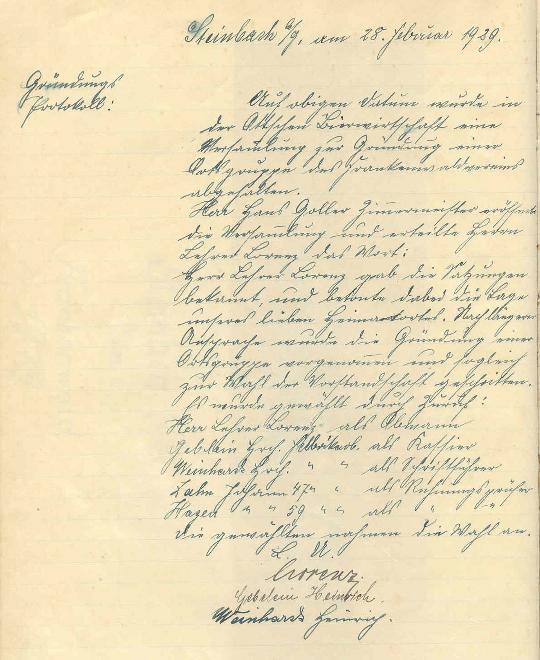 Steinbach a/g, am 28. Februar 1929.
Gründungs
Protokoll:
Auf obigen Datum wurde in
der Ottschen Bierwirtschaft eine
Versammlung zur Gründung einer
Ortsgruppe des Frankenwaldvereins
abgehalten.
Herr Hans Goller Zimmermeister eröffnete
die Versammlung und erteilte Herrn
Lehrer Lorenz das Wort:
Herr Lehrer Lorenz gab die Satzungen
bekannt, und betonte dabei die Lage
unseres lieben Heimatortes. Nach längerer
Ansprache wurde die Gründung einer
Ortsgruppe vorgenommen und sogleich
zur Wahl der Vorstandschaft geschritten.
Es wurde gewählt durch Zuruf:
Herr Lehrer Lorenz als Obmann
Gebelein Hch. als Kassier
Weinhardt Hch. " " als Schriftführer
Zahn Johann 47 " " als Rechnungsprüfer
Hagen " " 59 " " als " "
Die gewählten nahmen die Wahl an.
L. U.
Lorenz.
Gebelein Heinrich.
Weinhardt Heinrich.